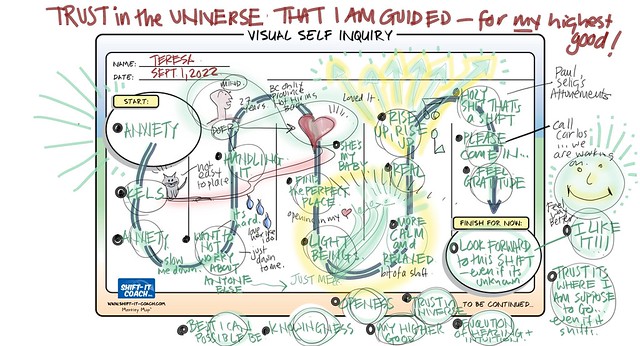 TRUST in the UNIVERSE THAT I AM GUIDED - for my highest good!
VISUAL SELF INQUIRY
NAME: TERESA
DATE: SEPT 1, 2022
START:
ANXIETY
FEELS
not easy to place
ANXIETY
slow me down
WANT IT NOT WORRY ABOUT ANYONE ELSE
just down to me.
JUST ME
it's hard.
HANDLING IT
MIND.
27 years.
BC only province not hiring back
Loved it.
SHE'S MY BABY
FIND the PERFECT PLACE
opening in my
LIGHT BEINGS
MORE CALM and RELAXED
bit of a shift
REAL
RISE UP, RISE UP
HOLY SHIT THAT'S A SHIFT
PLEASE COME IN...
FEEL GRATITUDE
Paul Selig's Attunements
Call Carlos ...we are working on...
Feel Better
FINISH FOR NOW:
LOOK FORWARD to this SHIFT even if its unknown
I LIKE IT!!!
TRUST ITS WHERE I AM SUPPOSE TO GO... even if it shifts.
SHIFT-IT COACH INC.
WWW.SHIFT-IT-COACH.COM
TO BE CONTINUED...
OPENNESS
TRUST in UNIVERSE
BEST I CAN POSSIBLE BE
KNOWINGNESS
MY HIGHER GOOD
EVOLUTION OF HEARING + INTUITION...